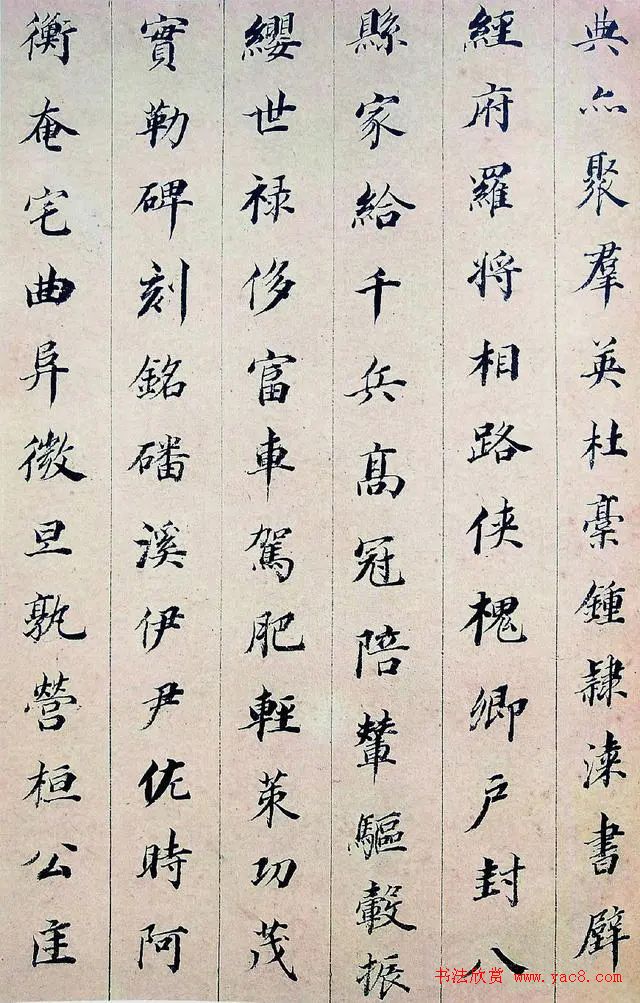 典亦聚羣英杜稾鍾隸漆書壁
經府羅將相路俠槐卿戶封八
縣家給千兵髙冠陪輦驅轂振
纓世禄侈富車駕肥輕策功茂
實勒碑刻銘磻溪伊尹佐時阿
衡奄宅曲阜微旦孰營桓公匡
书法欣赏
www.yac8.com